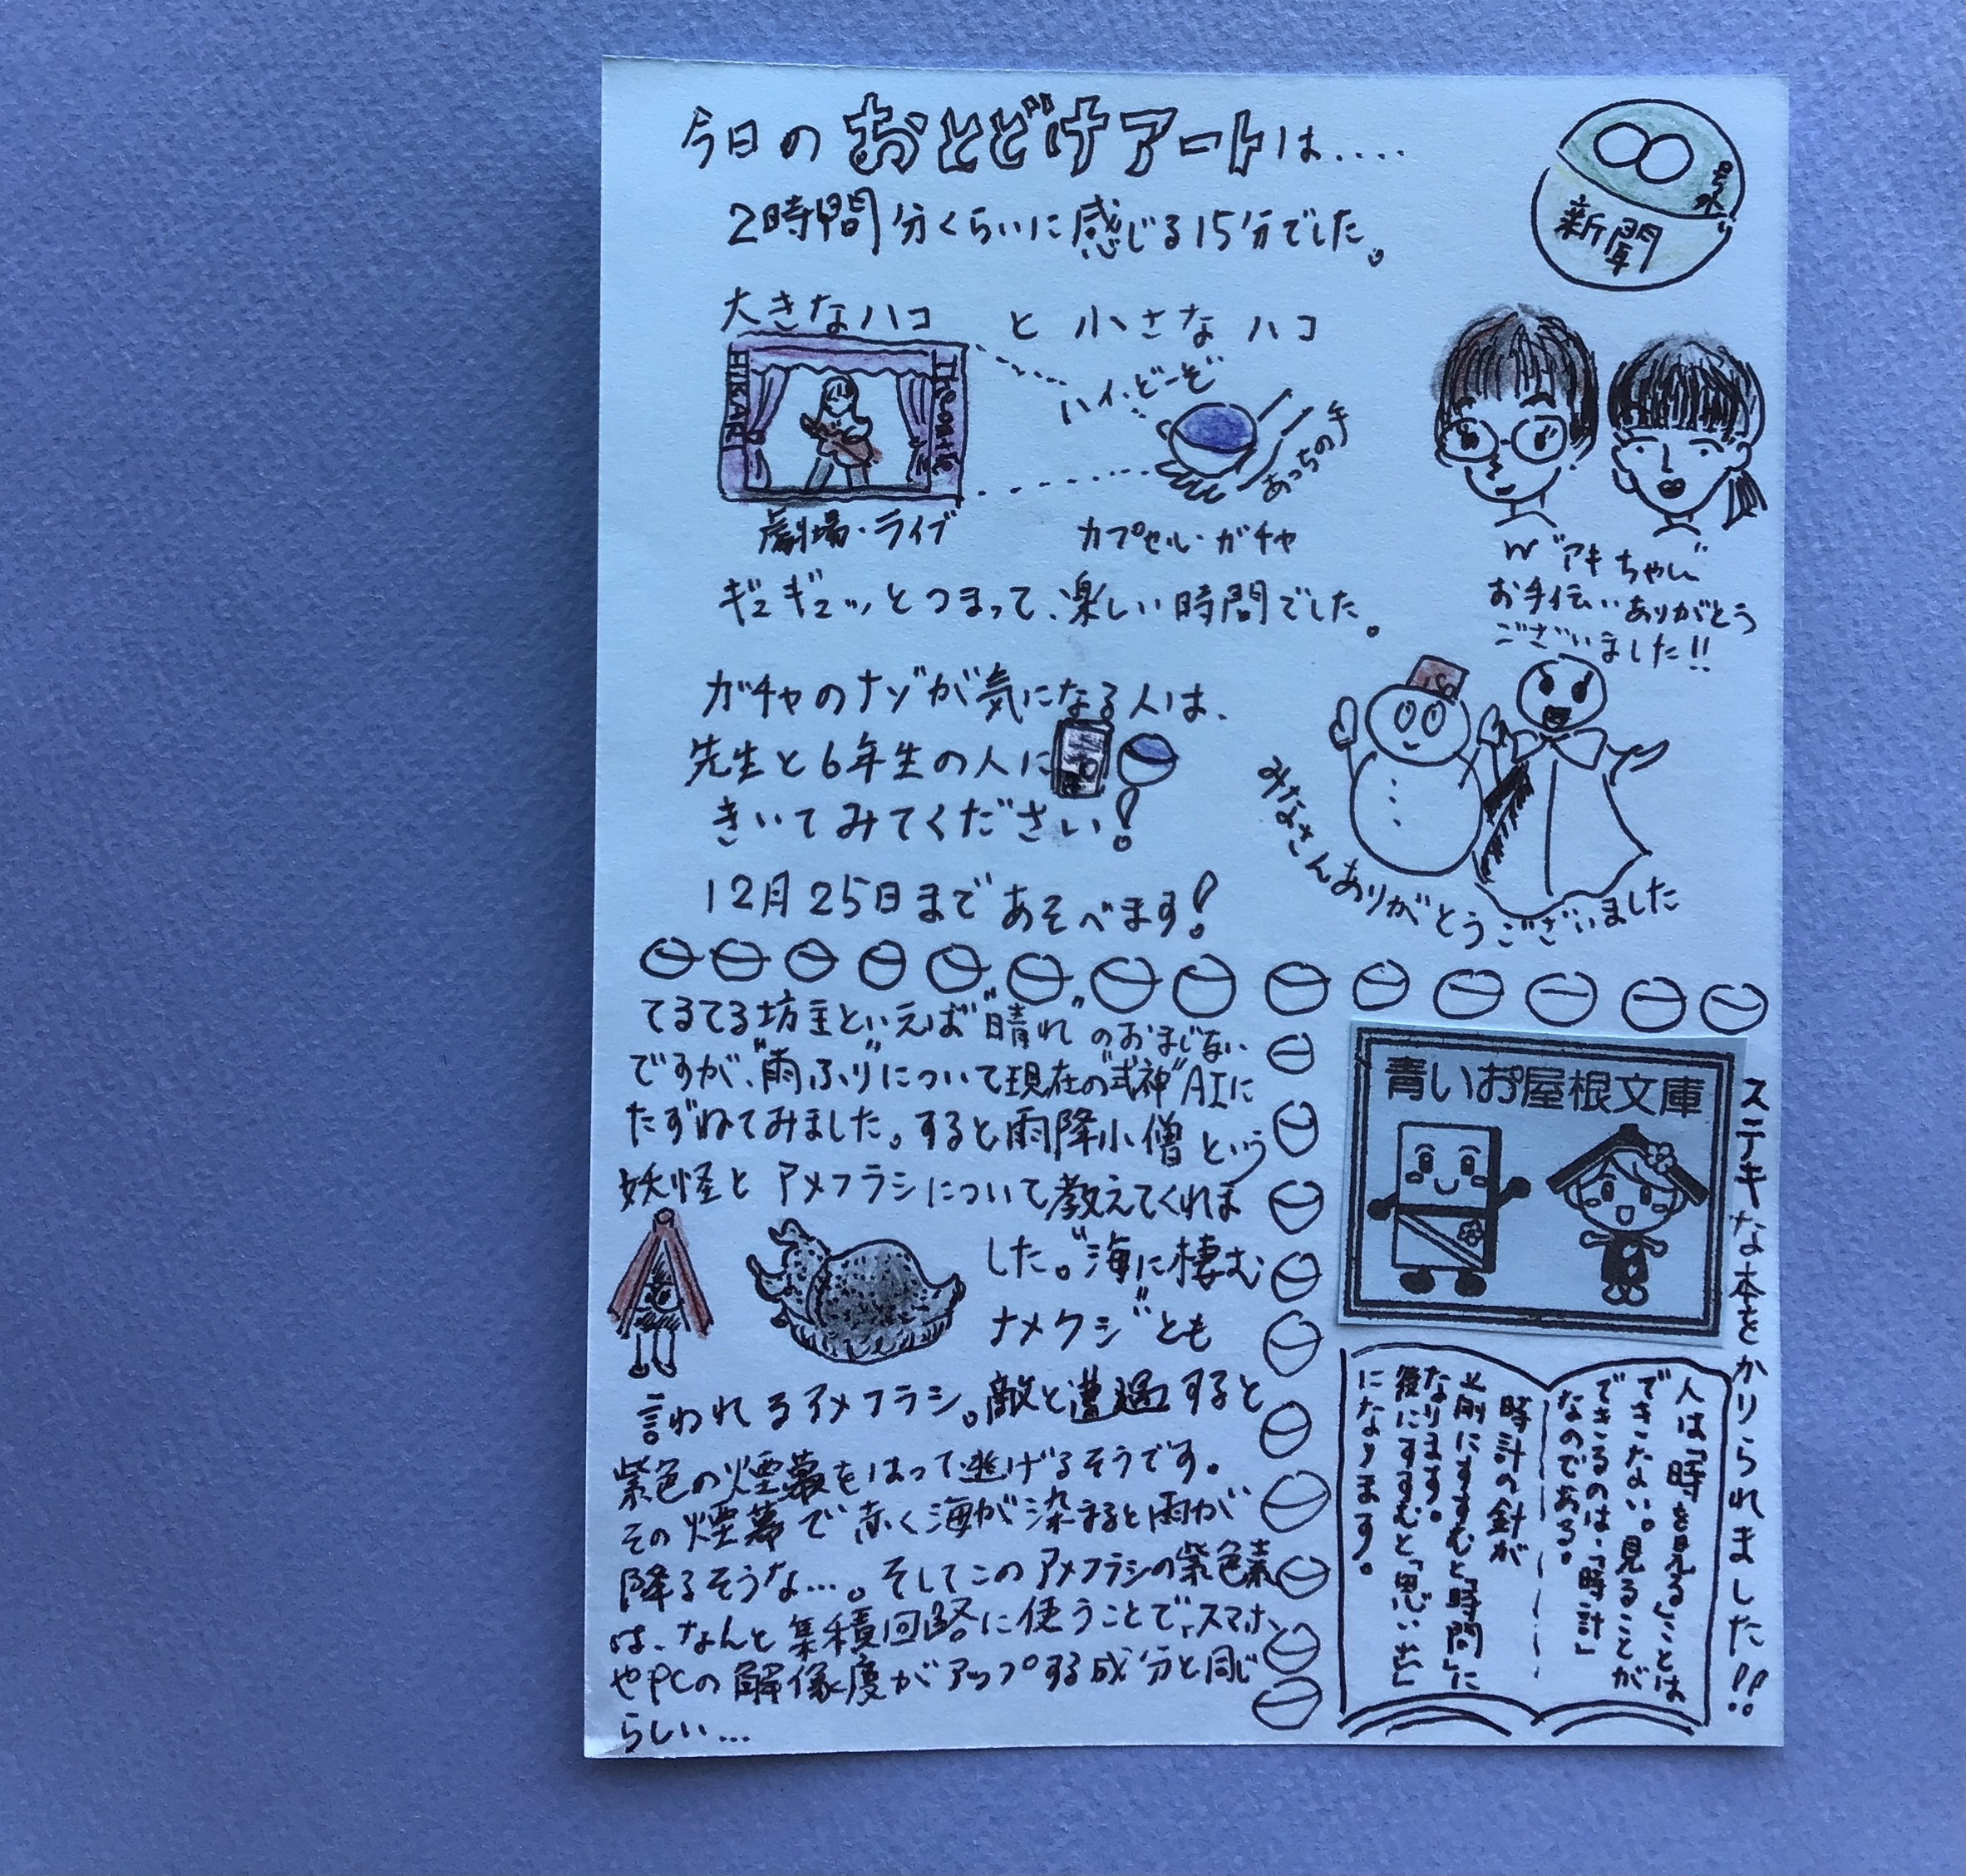 今日のおとどけアートは....
2時間分くらいに感じる15分でした。
新聞
大きなハコ と 小さな ハコ
HIKARI
Theatre
ハイ・どーぞ
あっちの手
劇場・ライブ
カプセル・ガチャ
ギュギュッとつまって、楽しい時間でした。
W"アキちゃん"
お手伝いありがとう
ございました!!
ガチャのナゾが気になる人は、
先生と6年生の人に
きいてみてください!
12月25日まであそべます!
みなさんありがとうございました
てるてる坊主といえば"晴れ"のおまじない
ですが、"雨ふり"について現在の"式神"AIに
たずねてみました。すると雨降小僧という
妖怪とアメフラシについて教えてくれま
した。"海に棲む
ナメクジ"とも
言われるアメフラシ。敵と遭遇すると
紫色の煙幕をはって逃げるそうです。
その煙幕で赤く海が染まると雨が
降るそうな...。そしてこのアメフラシの紫色素
は、なんと集積回路に使うことで、スマホ
やPCの解像度がアップする成分と同じ
らしい...
青いお屋根文庫
ステキな本をかりられました!!
人は「時を見る」ことは
できない。見ることが
できるのは、「時計」
なのである。
時計の針が
前にすすむと「時間」に
なります。
後にすすむと「思い出」
になります。